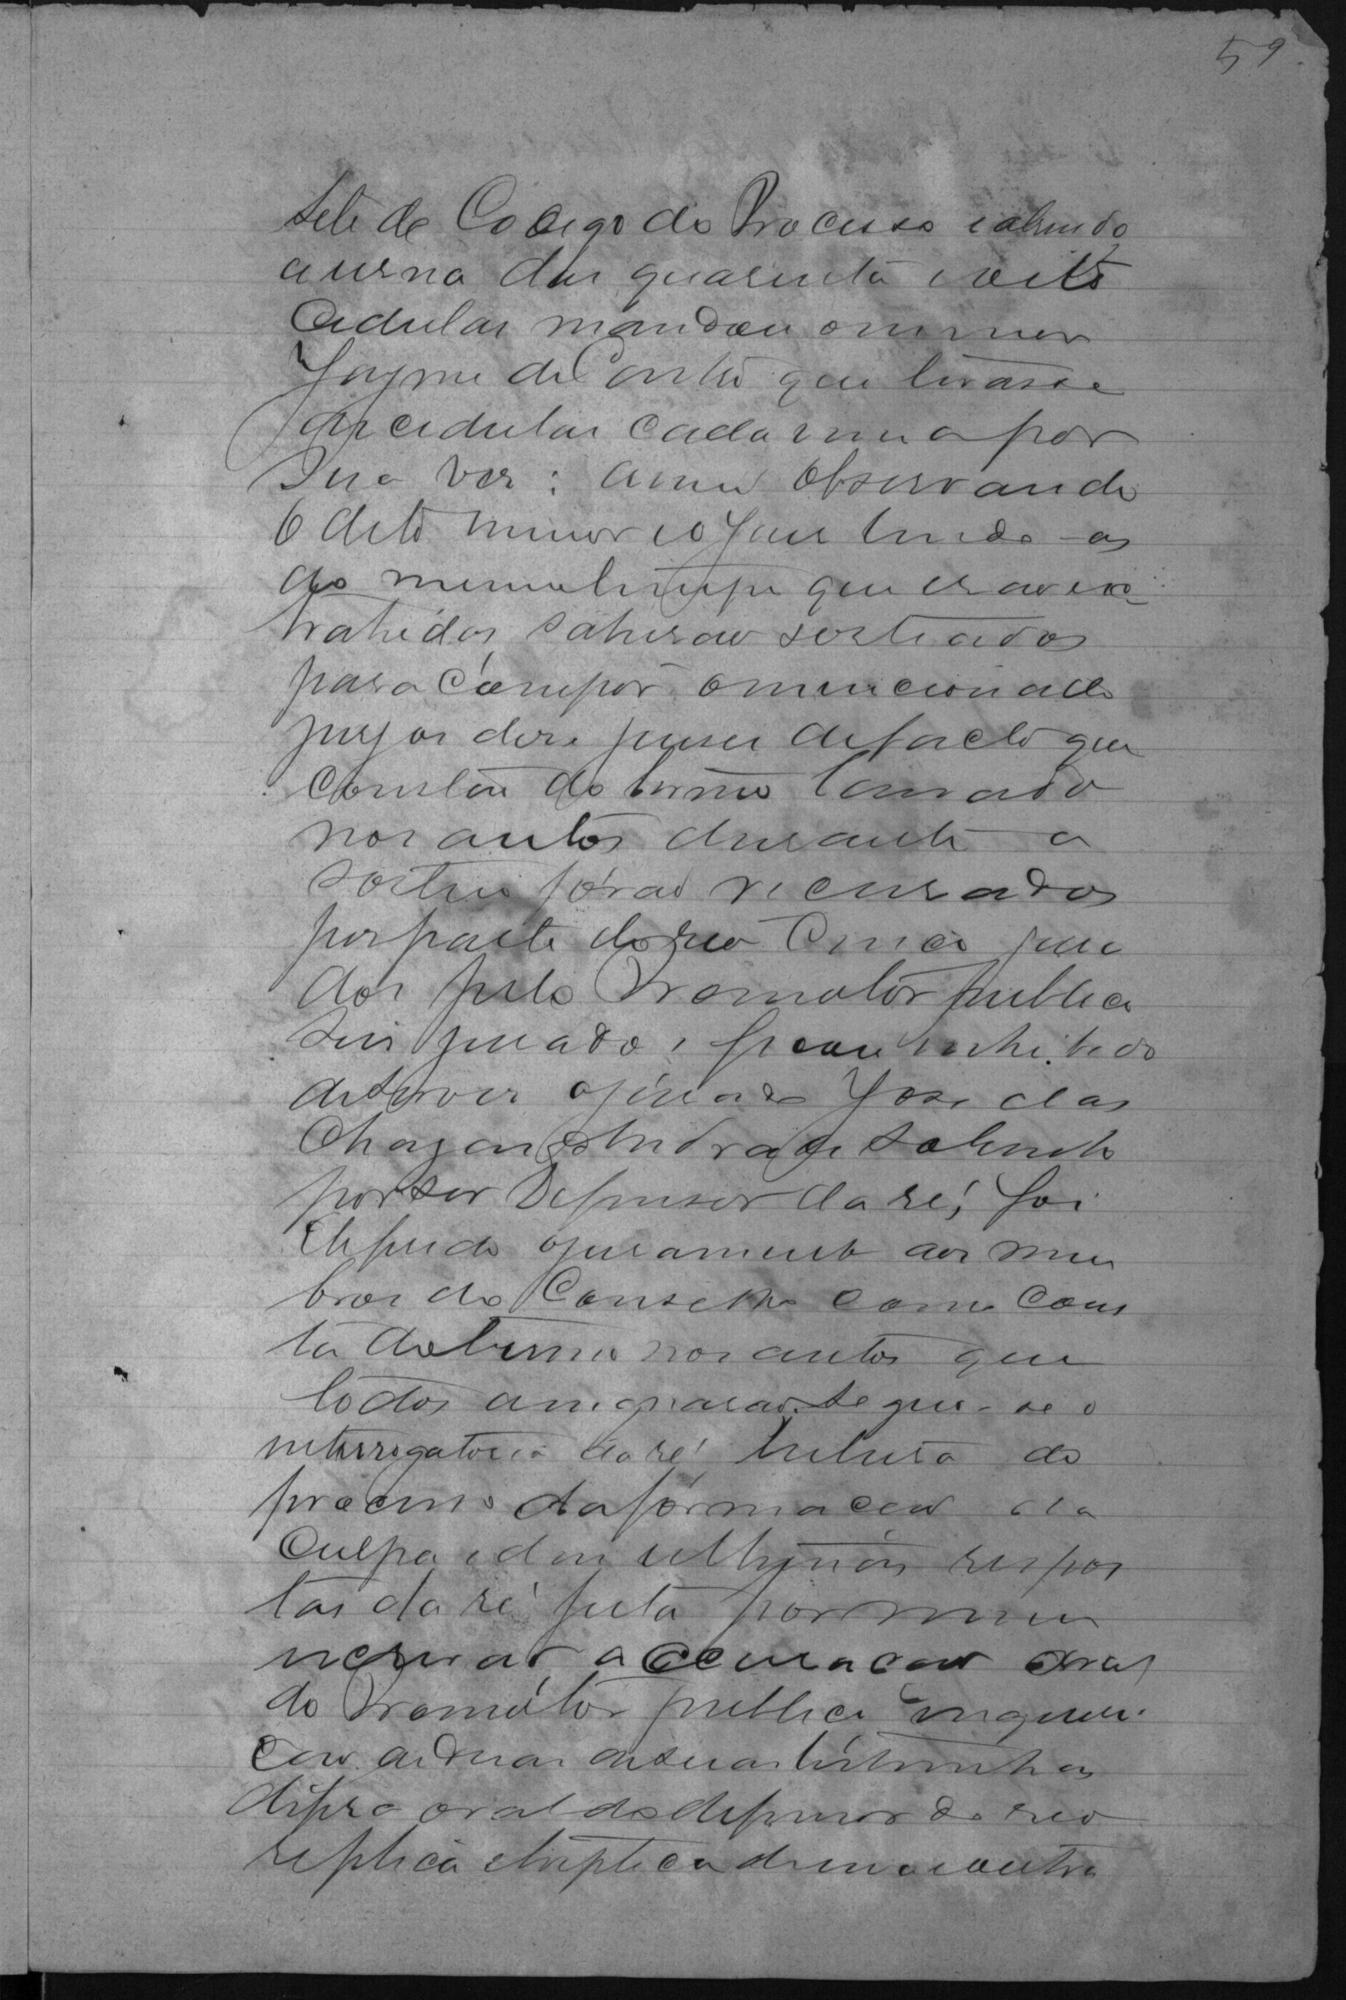 59
sete do Codego do Processo e abrindo
a urna das quarenta e oito
Cedulas mandou o menor
Jayme de Castro que tirasse
as cedulas cada uma por
sua vez: assim observando
o dito menor e o Juiz lendo-as
ao mesmo tempo que erao ex-
trahidas sahirao sorteados
para compor o mencionado
jury os doze juizes de facto que
constão do termo lavrado
nos autos durante o
sorteio fórao recusados
por parte do reo Cinco jura
dos pelo Promotor publico
seis jurados, ficou inhibido
de servir o jurado Jose das
Chagas Andrade
por ser Defensor da ré; foi
deferido o juramento aos mem
bros do Conselho como cons
ta do termo nos autos que
todos assignarao. Segue-se o
interrogatorio da ré leitura do
processo da formacao da
Culpa e das ultimas respos
tas da ré feita por mim
escrivao a accusacao oral
do Promotor publico inqueri
cao de duas de suas testemunhas
defesa oral do defensor do reo
replica e treplica de um a outro